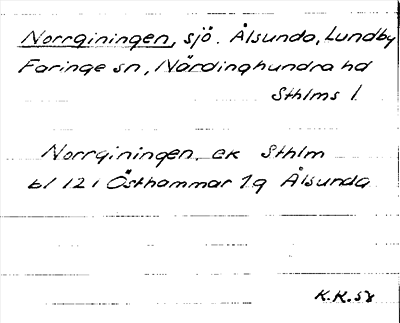 Norrginingen, sjö. Ålsunda, Lundby
Faringe sn, Närdinghundra hd
Sthlms l.
Norrginingen, ek Sthlm
bl 121 Östhammar 1.9 Ålsunda
K.K.58